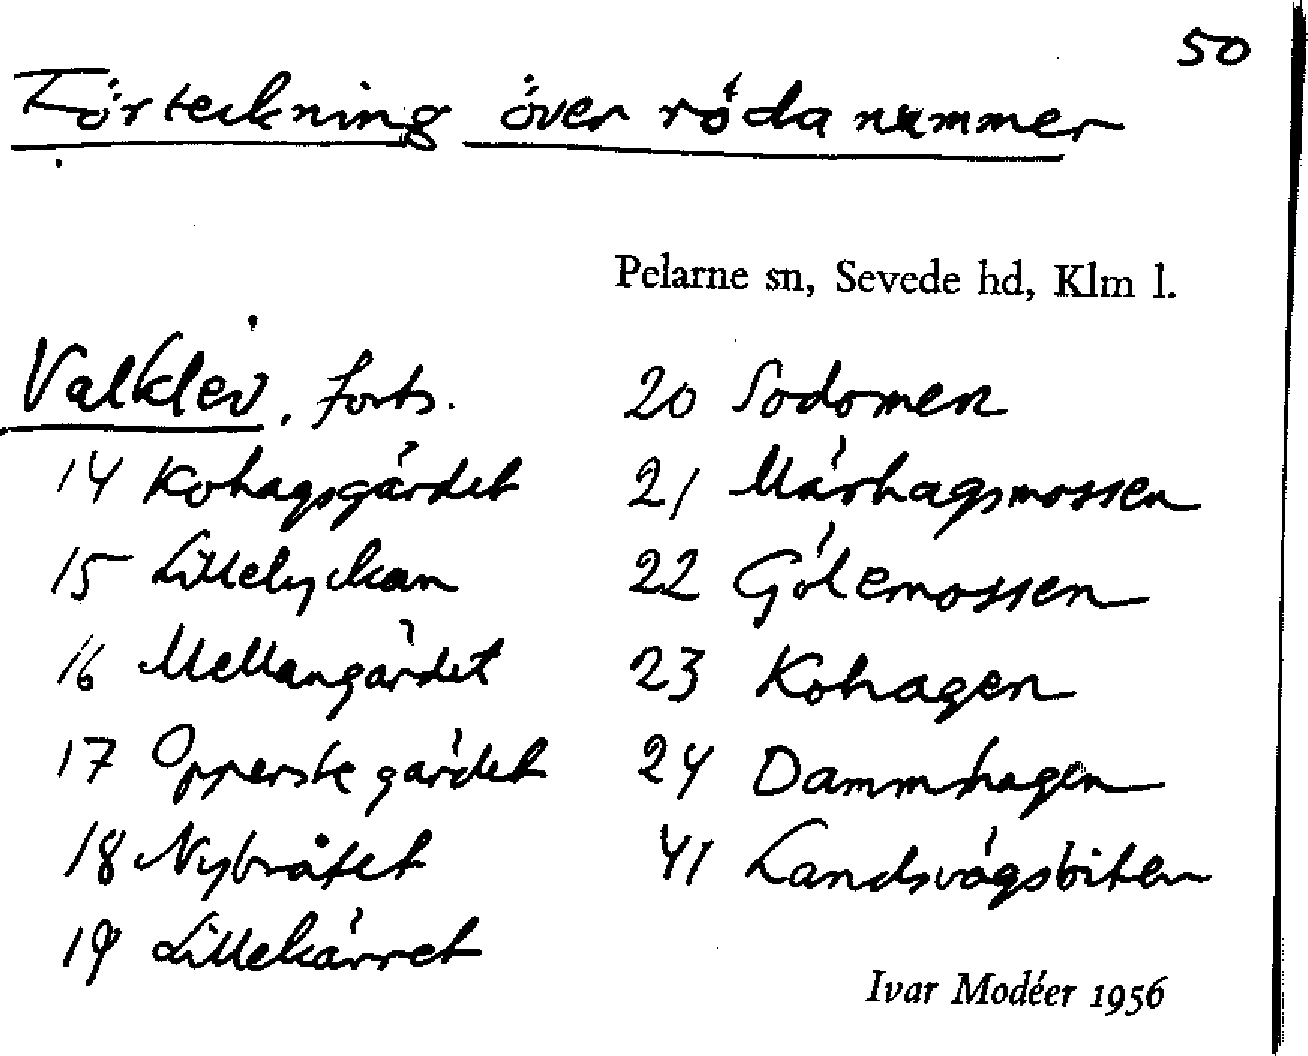 50
Förteckning över röda nummer
Pelarne sn, Sevede hd, Klm l.
Valklev, forts.
14 Kohagsgärdet
15 Lillelyckan
16 Mellangärdet
17 Opperste gärdet
18 Nybråtet
19 Lillekärret
20 Sodomen
21 Märhagsmossen
22 Gölemossen
23 Kohagen
24 Dammhagen
41 Landsvägsbiten
Ivar Modéer 1956